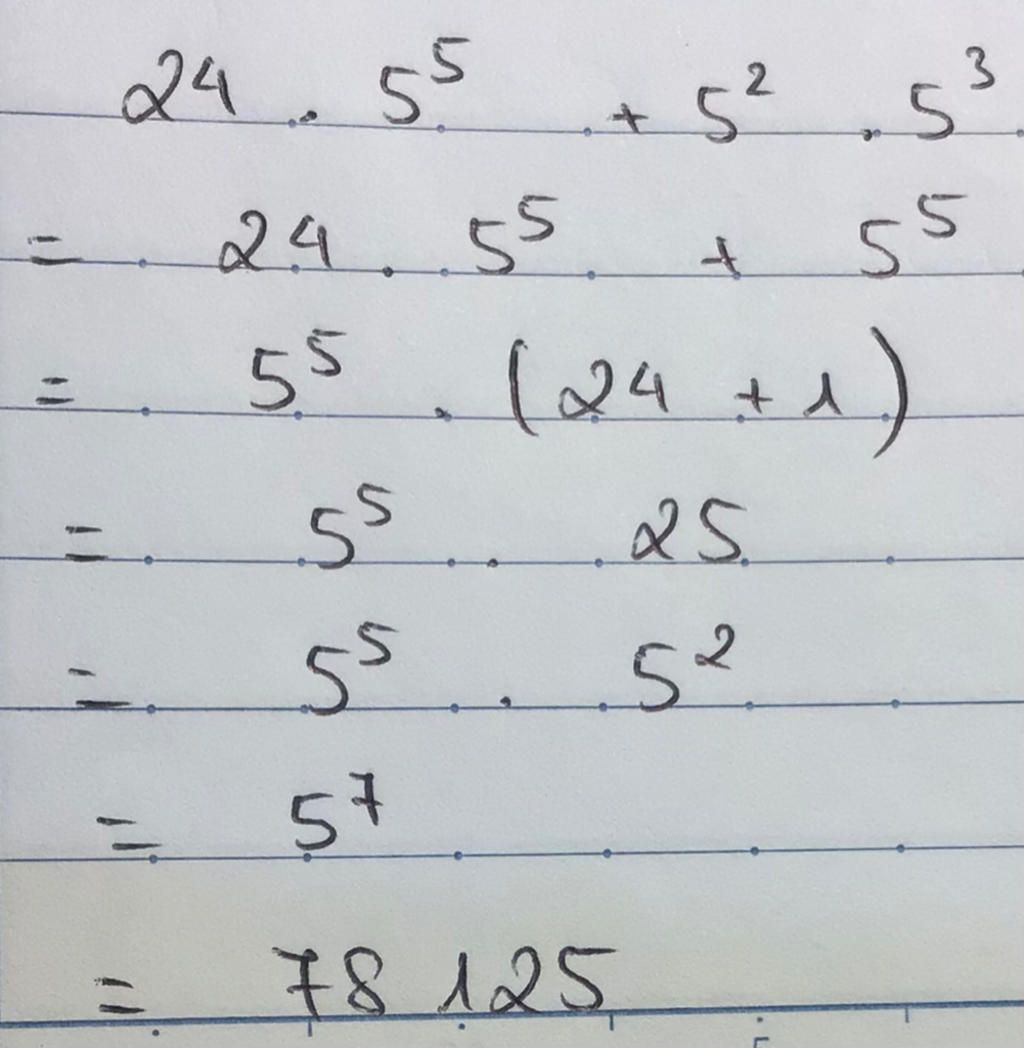 24 . 5⁵ + 5² . 5³
= 24 . 5⁵ + 5⁵
= 5⁵ . (24 + 1)
= 5⁵ . 25
= 5⁵ . 5²
= 5⁷
= 78 125